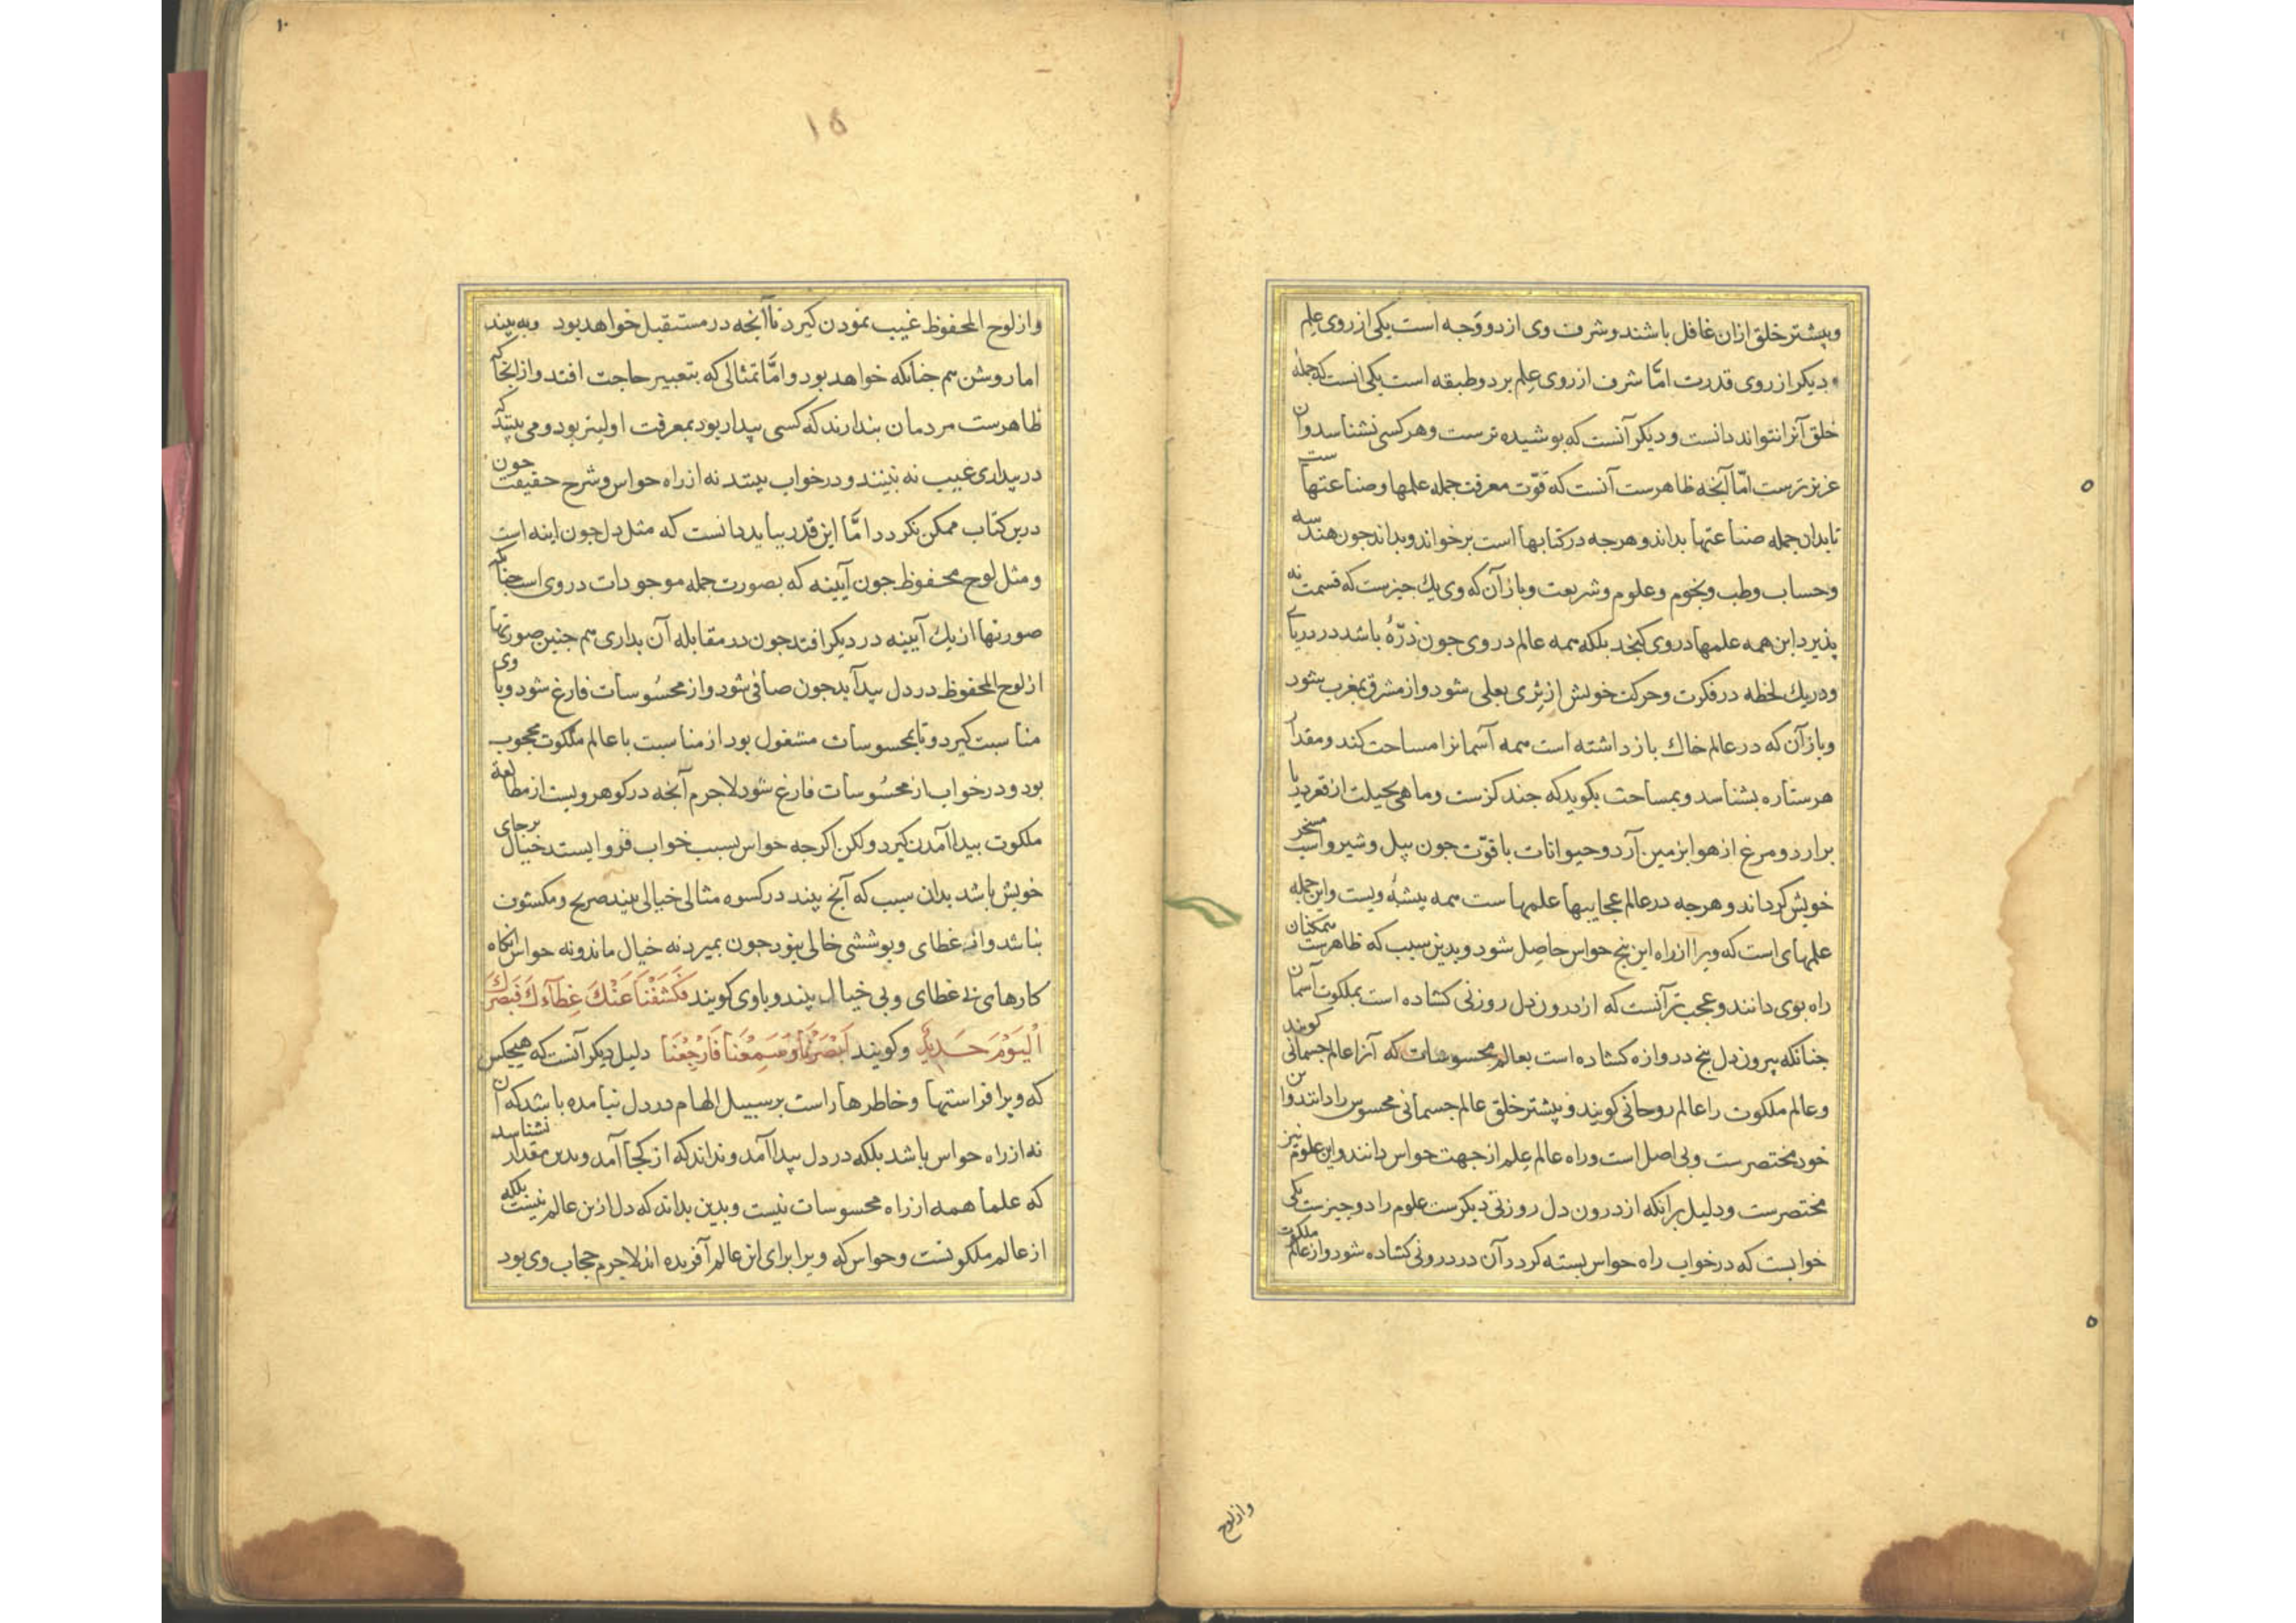 وبیشتر خلق ازان غافل باشند و شرف وی از دو وجه است یکی از روی علم
و دیکر از روی قدرت امّا شرف از روی علم بر دو طبقه است یکی انست که جمله
خلق آنرا نتوانند دانست و دیکر آنست که بوشیده ترست و هر کسی نشناسد و آن
عزیز ترست امّا آنجه ظاهرست آنست که قوّت معرفت جمله علمها و صناعتهاست
تا بدان جمله صناعتها بداند و هرجه در کتابها است برخواند و بداند جون هندسه
و حساب و طب و نجوم و علوم و شریعت و باز آن که وی یك جیزست که قسمت نه
پذیرد این همه علمها در وی کنجد بلکه همه عالم در وی جون ذرّهٔ باشد در دریای
و در یك لحظه در فکرت و حرکت خویش از ثری بعلی شود و از مشرق بمغرب شود
و باز آن که در عالم خاك بازداشته است همه آسمانرا مساحت کند و مقدار
هر ستاره بشناسد و بمساحت بکوید که جند کزست و ماهی بحیلت از قعر دریا
برارد و مرغ از هوا بزمین آرد و حیوانات با قوّت جون پیل و شیر و اسب مسخر
خویش کرداند و هرجه در عالم عجایبها علمهاست همه پیشهٔ ویست و این جمله
علمهای است که ویرا از راه این پنج حواس حاصل شود و بدین سبب که ظاهرست همکنان
راه بوی دانند و عجب تر آنست که از درون دل روزنی کشاده است بملکوت آسمان
جنانکه بیرون دل پنج دروازه کشاده است بعالم محسوسات که آنرا عالم جسمانی کویند
و عالم ملکوت را عالم روحانی کویند و بیشتر خلق عالم جسمانی محسوس را دانند و این
خود مختصرست و بی اصل است و راه عالم علم از جهت حواس دانند و این علوم نیز
مختصرست و دلیل بر انکه از درون دل روزنی دیکرست علوم را دو جیزست یکی
خوابست که در خواب راه حواس بسته کردد آن در درونی کشاده شود و از عالم ملکوت
واز لوح
۱۵
۱۰
و از لوح المحفوظ غیب نمودن کیرد تا آنجه در مستقبل خواهد بود وبه بیند
اما روشن هم جنانکه خواهد بود و امّا تمثالی که بتعبیر حاجت افتد و از انجا که
ظاهرست مردمان بندارند که کسی بیدار بود بمعرفت اولیتر بود و می بینند که
در بیداری غیب نه بینند و در خواب بینند نه از راه حواس و شرح حقیقت جون
درین کتاب ممکن نکردد امّا این قدر بباید دانست که مثل دل جون اینه است
و مثل لوح محفوظ جون آیینه که بصورت جمله موجودات در وی است جنانکه
صورتها از یك آیینه در دیکر افتد جون در مقابله آن بداری هم جنین صورتها
از لوح المحفوظ در دل پیدا آید جون صافی شود و از محسُوسات فارغ شود و با وی
مناسبت کیرد و تا بمحسوسات مشغول بود از مناسبت با عالم ملکوت محجوب
بود و در خواب از محسُوسات فارغ شود لاجرم آنجه در کوهر ویست از مطالعهٔ
ملکوت بیدا آمدن کیرد و لکن اکرجه حواس بسبب خواب فروایستد خیال برجای
خویش باشد بدان سبب که آنچ بیند در کسوه مثالی خیالی بیند صریح و مکشوف
نباشد و از غطای و بوششی خالی نبود جون بمیرد نه خیال ماند و نه حواس انکاه
کارهای بی غطای و بی خیال بیند و باوی کویند فَکَشَفْنَا عَنْكَ غِطَآءَكَ فَبَصَرُكَ
اَلْیَوْمَ حَدِیدٌ و کویند اَبْصَرْنَا وَ سَمِعْنَا فَارْجِعْنَا دلیل دیکر آنست که هیجکس
که ویرا فراستها و خاطرها راست بر سبیل الهام در دل نیامده باشد که آن
نه از راه حواس باشد بلکه در دل بیدا آمد و نداند که از کجا آمد و بدین مقدار نشناسد
که علما همه از راه محسوسات نیست و بدین بداند که دل از ین عالم نیست بلکه
از عالم ملکوتست و حواس که ویرا برای این عالم آفریده اند لاجرم حجاب وی بود